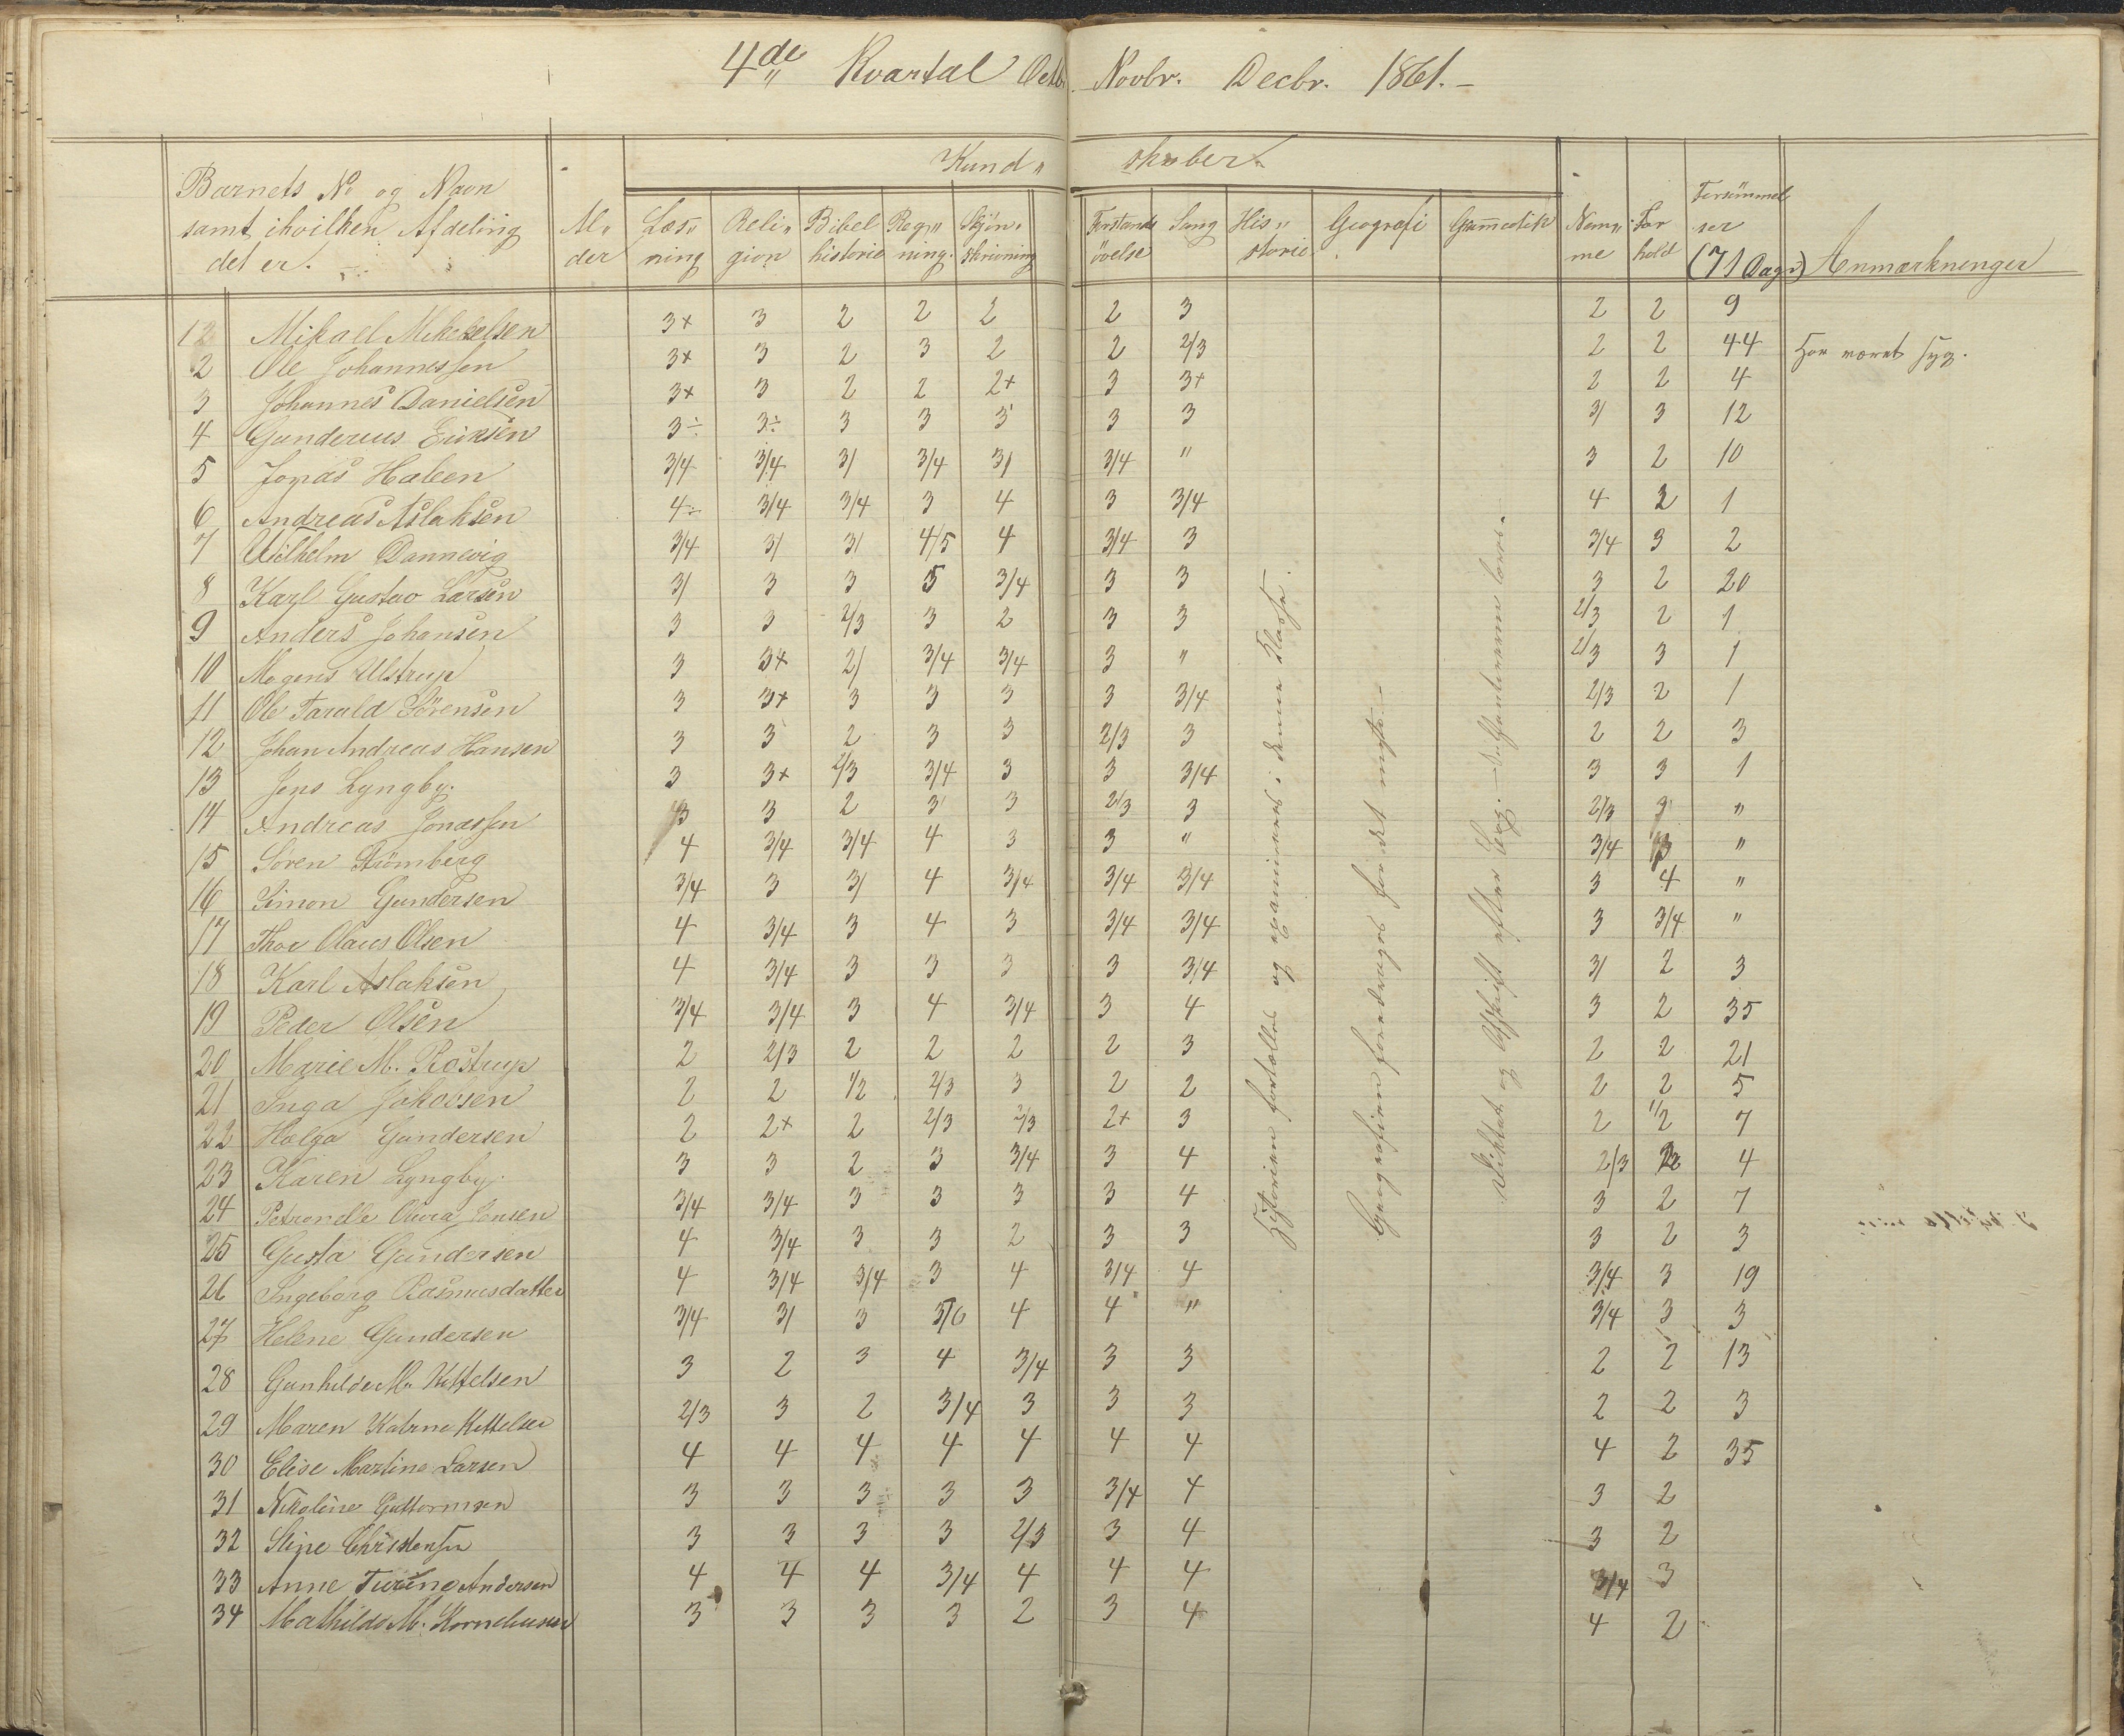 4de Kvartal Octb. Novbr. Decbr. 1861.-
Kund" skaber.
Barnets No og Navn samt ihvilken Afdeling det er. | Al" der | Læs" ning | Reli" gion | Bibel historie | Reg" ning. | Skjön" skrivning | Forstands övelse | Sang | His" storie | Geografi | Grammatik | Nem" me | For hold | Forsömmel ser (71 Dage) | Anmærkninger
1 Mikael Mikkelsen 3+ 3 2 2 2 2 3 2 2 9
2 Ole Johannessen 3+ 3 2 3 2 2 2/3 2 2 44 Har været syg.
3 Johannes Danielsen 3+ 3 2 2 2+ 3 3+ 2 2 4
4 Gunderius Eriksen 3÷ 3÷ 3 3 3 3 3 3/ 3 12
5 Jonas Haleen 3/4 3/4 3/ 3/4 3/ 3/4 " 3 2 10
6 Andreas Aslaksen 4÷ 3/4 3/4 3 4 3 3/4 4 2 1
7 Wilhelm Dannevig 3/4 3/ 3/ 4/5 4 3/4 3 3/4 3 2
8 Karl Gustav Larsen 3/ 3 3 5 3/4 3 3 3 2 20
9 Anders Johansen 3 3 2/3 3 2 3 3 2/3 2 1
10 Mogens Ulstrup 3 3+ 2/ 3/4 3/4 3 " 2/3 3 1
11 Ole Tarald Sörensen 3 3+ 3 3 3 3 3/4 2/3 2 1
12 Johan Andreas Hansen 3 3 2 3 3 2/3 3 2 2 3
13 Jens Lyngby. 3 3+ 2/3 3/4 3 3 3/4 3 3 1
14 Andreas Jonassen 3 3 2 3 3 2/3 3 2/3 3 "
15 Sören Strömberg 4 3/4 3/4 4 3 3 " 3/4 3 "
16 Simon Gundersen 3/4 3 3/ 4 3/4 3/4 3/4 3 4 "
17 Thor Olaus Olsen 4 3/4 3 4 3 3/4 3/4 3 3/4 "
18 Karl Aslaksen 4 3/4 3 3 3 3 3/4 3/ 2 3
19 Peder Olsen 3/4 3/4 3 4 3/4 3 4 3 2 35
20 Marie M. Rostrup 2 2/3 2 2 2 2 3 2 2 21
21 Inga Jakobsen 2 2 1/2 2/3 3 2 2 2 2 5
22 Helga Gundersen 2 2+ 2 2/3 2/3 2+ 3 2 1/2 7
23 Karen Lyngby. 3 3 2 3 3/4 3 4 2/3 2 4
24 Petronelle Olivia Jensen 3/4 3/4 3 3 3 3 4 3 2 7
25 Gusta Gundersen 4 3/4 3 3 2 3 3 3 2 3
26 Ingeborg Rasmusdatter 4 3/4 3/4 3 4 3/4 4 3/4 3 19
27 Helene Gundersen 3/4 3/ 3 5/6 4 4 " 3/4 3 3
28 Gunhilde M. Kittelsen 3 2 3 4 3/4 3 3 2 2 13
29 Maren Katrine Kittelsen 2/3 3 2 3/4 3 3 3 2 2 3
30 Elise Martine Larsen 4 4 4 4 4 4 4 4 2 35
31 Nikoline Guttormsen 3 3 3 3 3 3/4 4 3 2
32 Stine Christensen 3 3 3 3 2/3 3 4 3 2
33 Anne Turine Andersen 4 4 4 3/4 4 4 4 3/4 3
34 Mathilde M. Korneliussen 3 3 3 3 2 3 4 4 2
Historien fortælles og examineres i denne Klasse.
Geografien foredrages for det meste.
Diktat og Afskrift efter Bog.